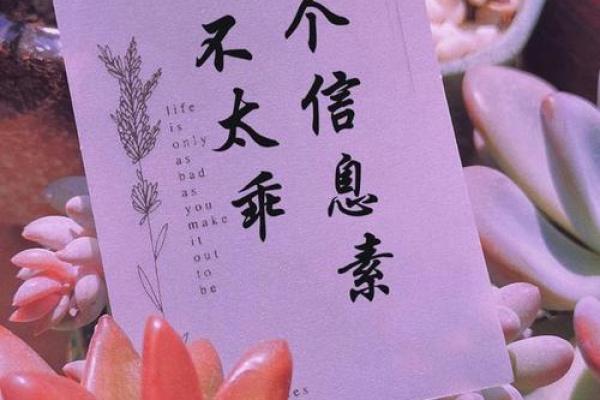 个信息素
不太乖
life
is
only
as
bad
as
you
make
it
out
to
be